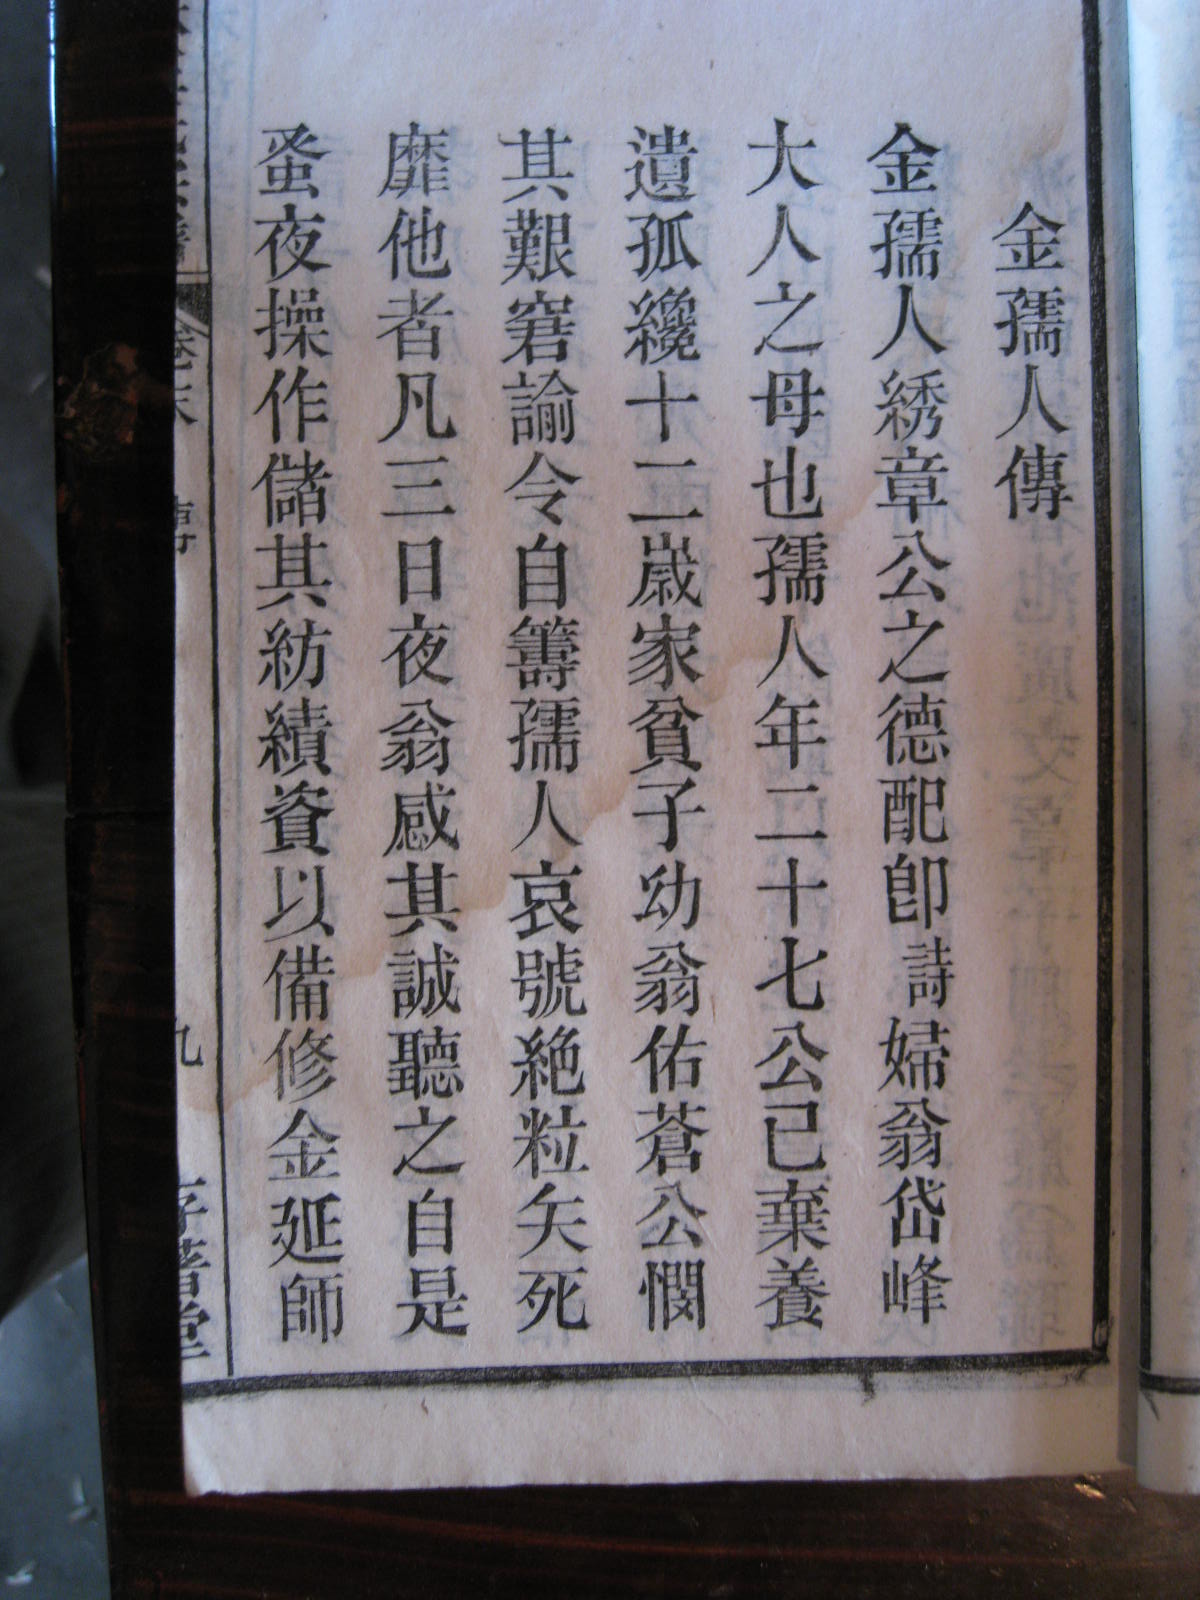 金孺人傳
金孺人綉章公之德配卽詩婦翁岱峰
大人之母也孺人年二十七公已棄養
遺孤纔十二歲家貧子幼翁佑蒼公憫
其艱窘諭令自籌孺人哀號絶粒矢死
靡他者凡三日夜翁感其誠聽之自是
蚤夜操作儲其紡績資以備修金延師
卷末
傳
九